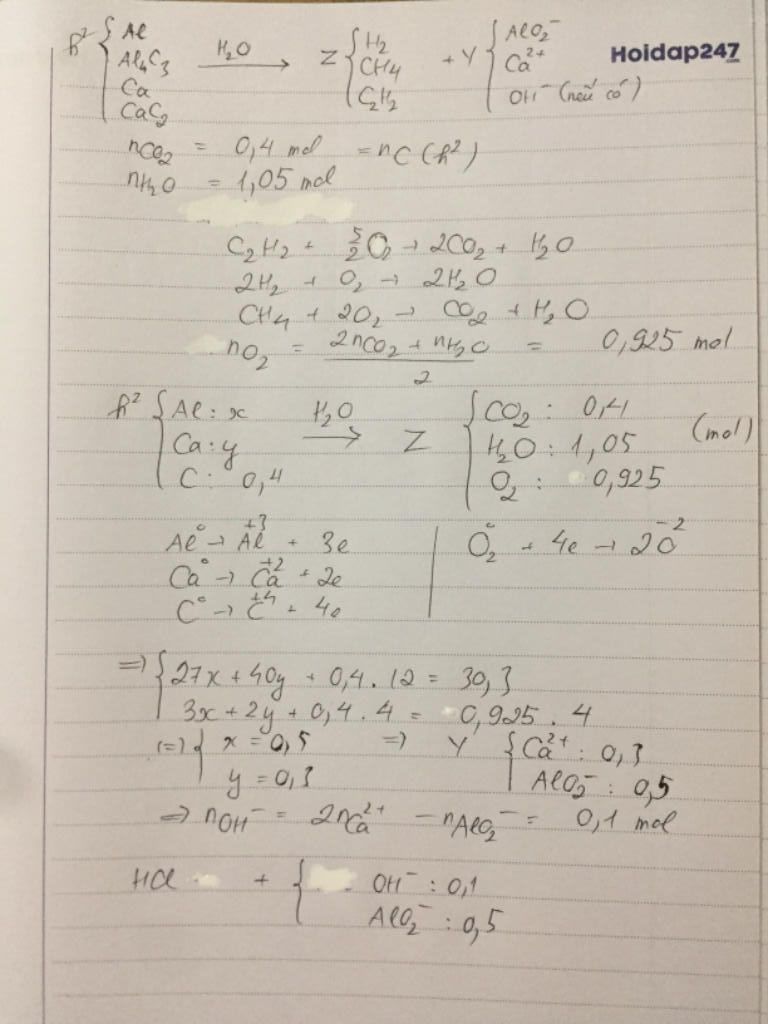 h² { Al
Al₄C₃
Ca
CaC₂ —H₂O→ Z { H₂
CH₄
C₂H₂ + Y { AlO₂⁻
Ca²⁺
OH⁻ (nếu có)
Hoidap247
nCO₂ = 0,4 mol = nC (h²)
nH₂O = 1,05 mol
C₂H₂ + 5/2 O₂ → 2CO₂ + H₂O
2H₂ + O₂ → 2H₂O
CH₄ + 2O₂ → CO₂ + H₂O
nO₂ = (2nCO₂ + nH₂O)/2 = 0,925 mol
h² { Al: x
Ca: y
C: 0,4 —H₂O→ Z { CO₂: 0,4
H₂O: 1,05
O₂: 0,925 (mol)
Al⁰ → Al⁺³ + 3e | O₂⁰ + 4e → 2O⁻²
Ca⁰ → Ca⁺² + 2e
C⁰ → C⁺⁴ + 4e
=> { 27x + 40y + 0,4 . 12 = 30,3
3x + 2y + 0,4 . 4 = 0,925 . 4
(=) { x = 0,5
y = 0,3 => Y { Ca²⁺: 0,3
AlO₂⁻: 0,5
=> nOH⁻ = 2nCa²⁺ - nAlO₂⁻ = 0,1 mol
HCl + { OH⁻: 0,1
AlO₂⁻: 0,5